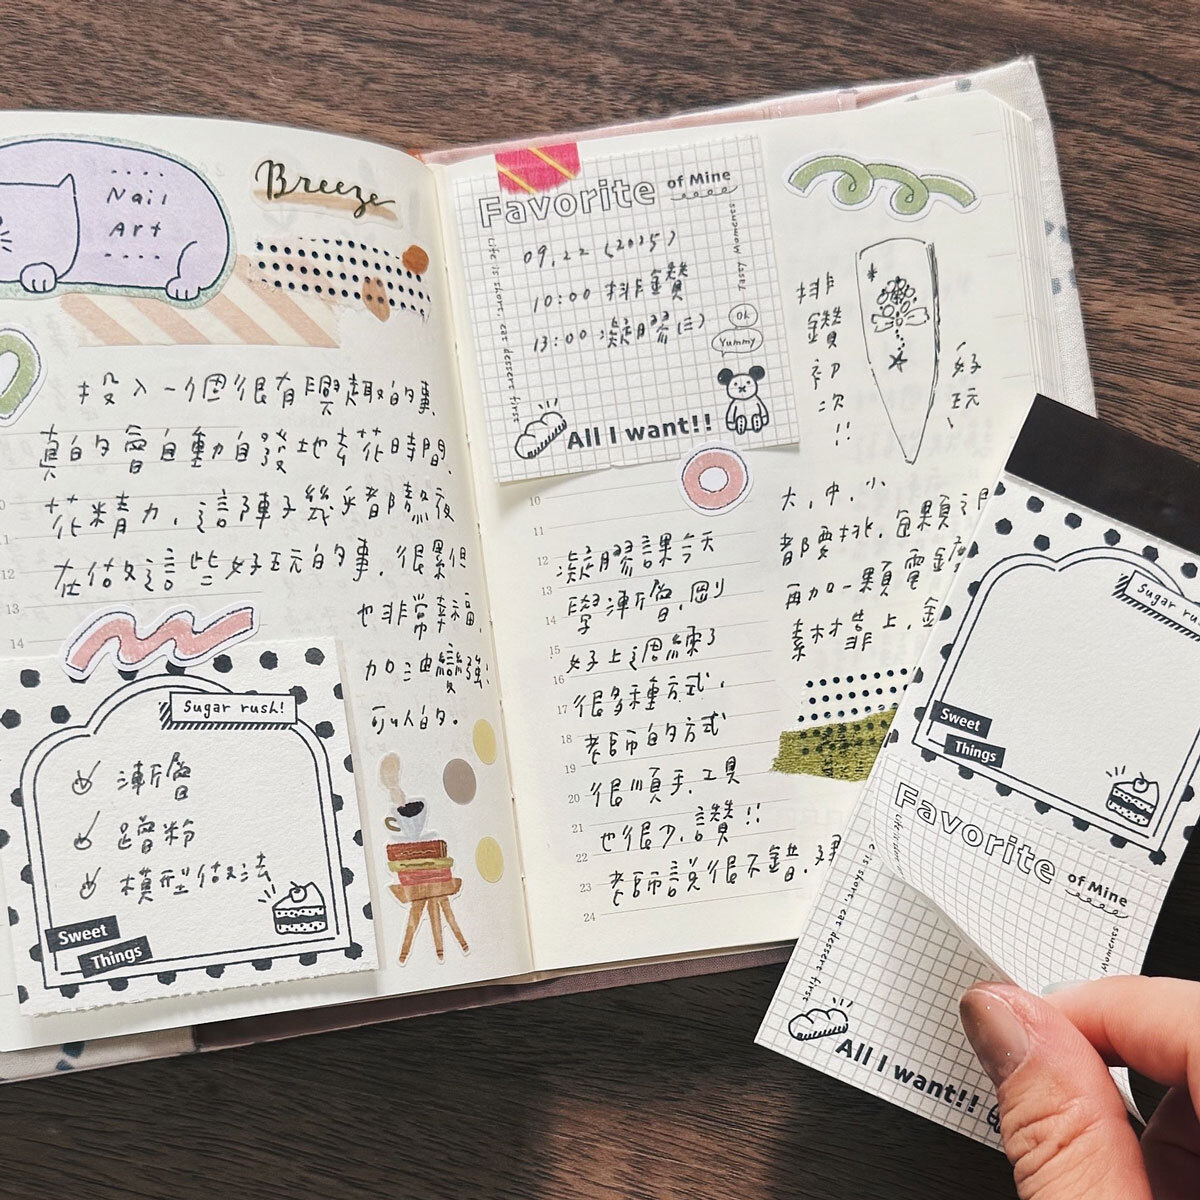 Nail
Art
Breeze
投入一個很有興趣的事、
真的會自動自發地去花時間、
花精力,這陣子幾乎都陪熬夜
在做這些好玩的事、很累但
也非常幸福,
加油變強
可以的。
Sugar rush!
漸層
蹭粉
模型做法
Sweet
Things
Favorite of Mine
Life is short, eat dessert first
Tasty Moments
09.22 (2025)
10:00 排鑽
13:00 凝膠(三)
Oh
Yummy
All I want!!
排鑽初次!!
好玩、
10
11
12
13
14
15
16
17
18
19
20
21
22
23
24
凝膠課今天
學漸層,剛
好上週練了
很多種方式,
老師的方式
很順手,工具
也很少,讚!!
老師說很不錯,
大,中,小
都要排,每顆
再加一顆電
素材靠上,金
12
13
14
Sugar rus
Sweet
Things
Favorite of Mine
Life is short, eat dessert first
Moments
All I want!!